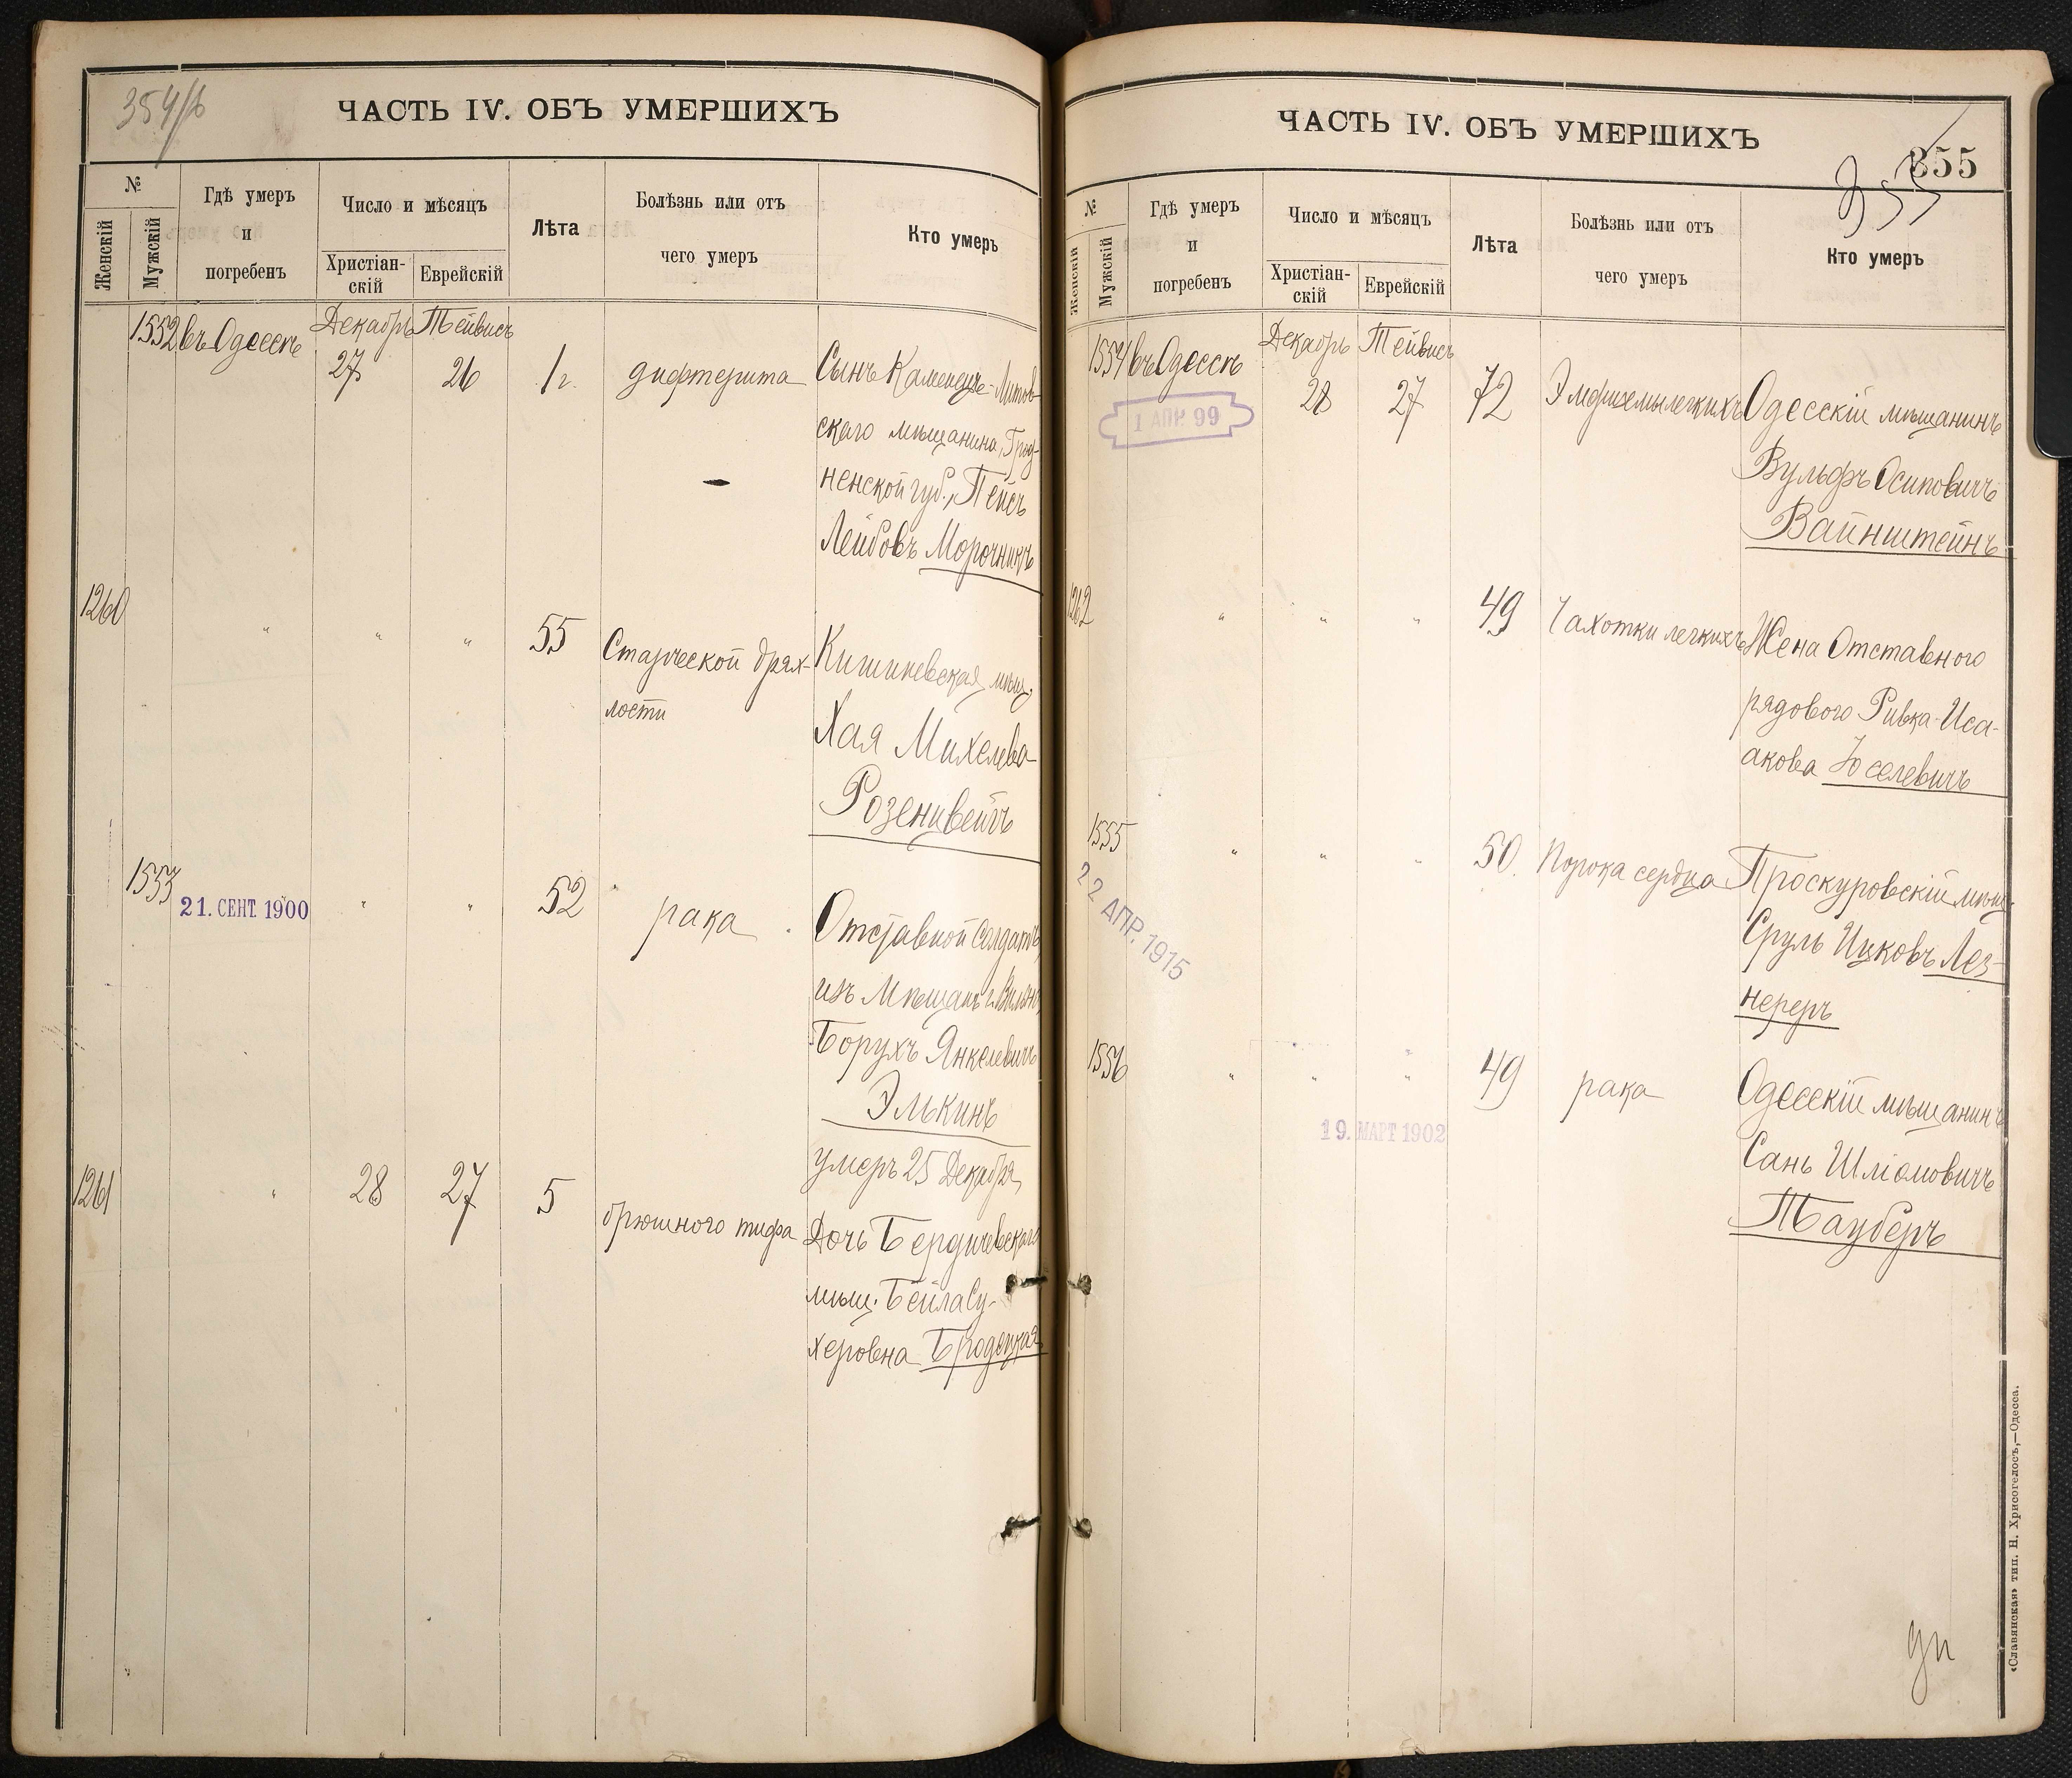 354/б
ЧАСТЬ IV. ОБЪ УМЕРШИХЪ
№
Женскій
Мужскій
Гдѣ умеръ
и
погребенъ
Число и мѣсяцъ
Христіан-
скій
Еврейскій
Лѣта
Болѣзнь или отъ
чего умеръ
Кто умеръ
1552
въ Одессѣ
Декабрь
27
Тейвисъ
26
1 г.
дифтерита
Сынъ Каменецъ-Литов-
скаго мѣщанина, Грод-
ненской губ., Пейсъ
Лейбовъ Морочникъ
1260
"
"
"
55
Старческой дрях-
лости
Кишиневская мѣщ.
Хая Михелева
Розенцвейгъ
1553
21. СЕНТ. 1900
"
"
52
рака
Отставной Солдатъ,
изъ Мѣщанъ г. Вильно,
Борухъ Янкелевичъ
Элькинъ
умеръ 25 Декабря
1261
"
28
27
5
брюшного тифа
Дочь Бердичевскаго
мѣщ. Бейла Су-
херовна Бродецкая
ЧАСТЬ IV. ОБЪ УМЕРШИХЪ
355
355
№
Женскій
Мужскій
Гдѣ умеръ
и
погребенъ
Число и мѣсяцъ
Христіан-
скій
Еврейскій
Лѣта
Болѣзнь или отъ
чего умеръ
Кто умеръ
1554
въ Одессѣ
1 АПР. 99
Декабрь
28
Тейвисъ
27
72
Эмфиземы легкихъ
Одесскій мѣщанинъ
Вульфъ Осиповичъ
Вайнштейнъ
1262
"
"
"
49
Чахотки легкихъ
Жена Отставного
рядового Ривка Иса-
акова Іоселевичъ
1555
22 АПР. 1915
"
"
"
50.
Порока сердца
Проскуровскій мѣщ.
Сруль Ицковъ Лез-
нереръ
1556
"
"
"
19. МАРТ 1902
49
рака
Одесскій мѣщанинъ
Сань Шліомовичъ
Тауберъ
«Славянская» тип. Н. Хрисогелосъ,—Одесса.